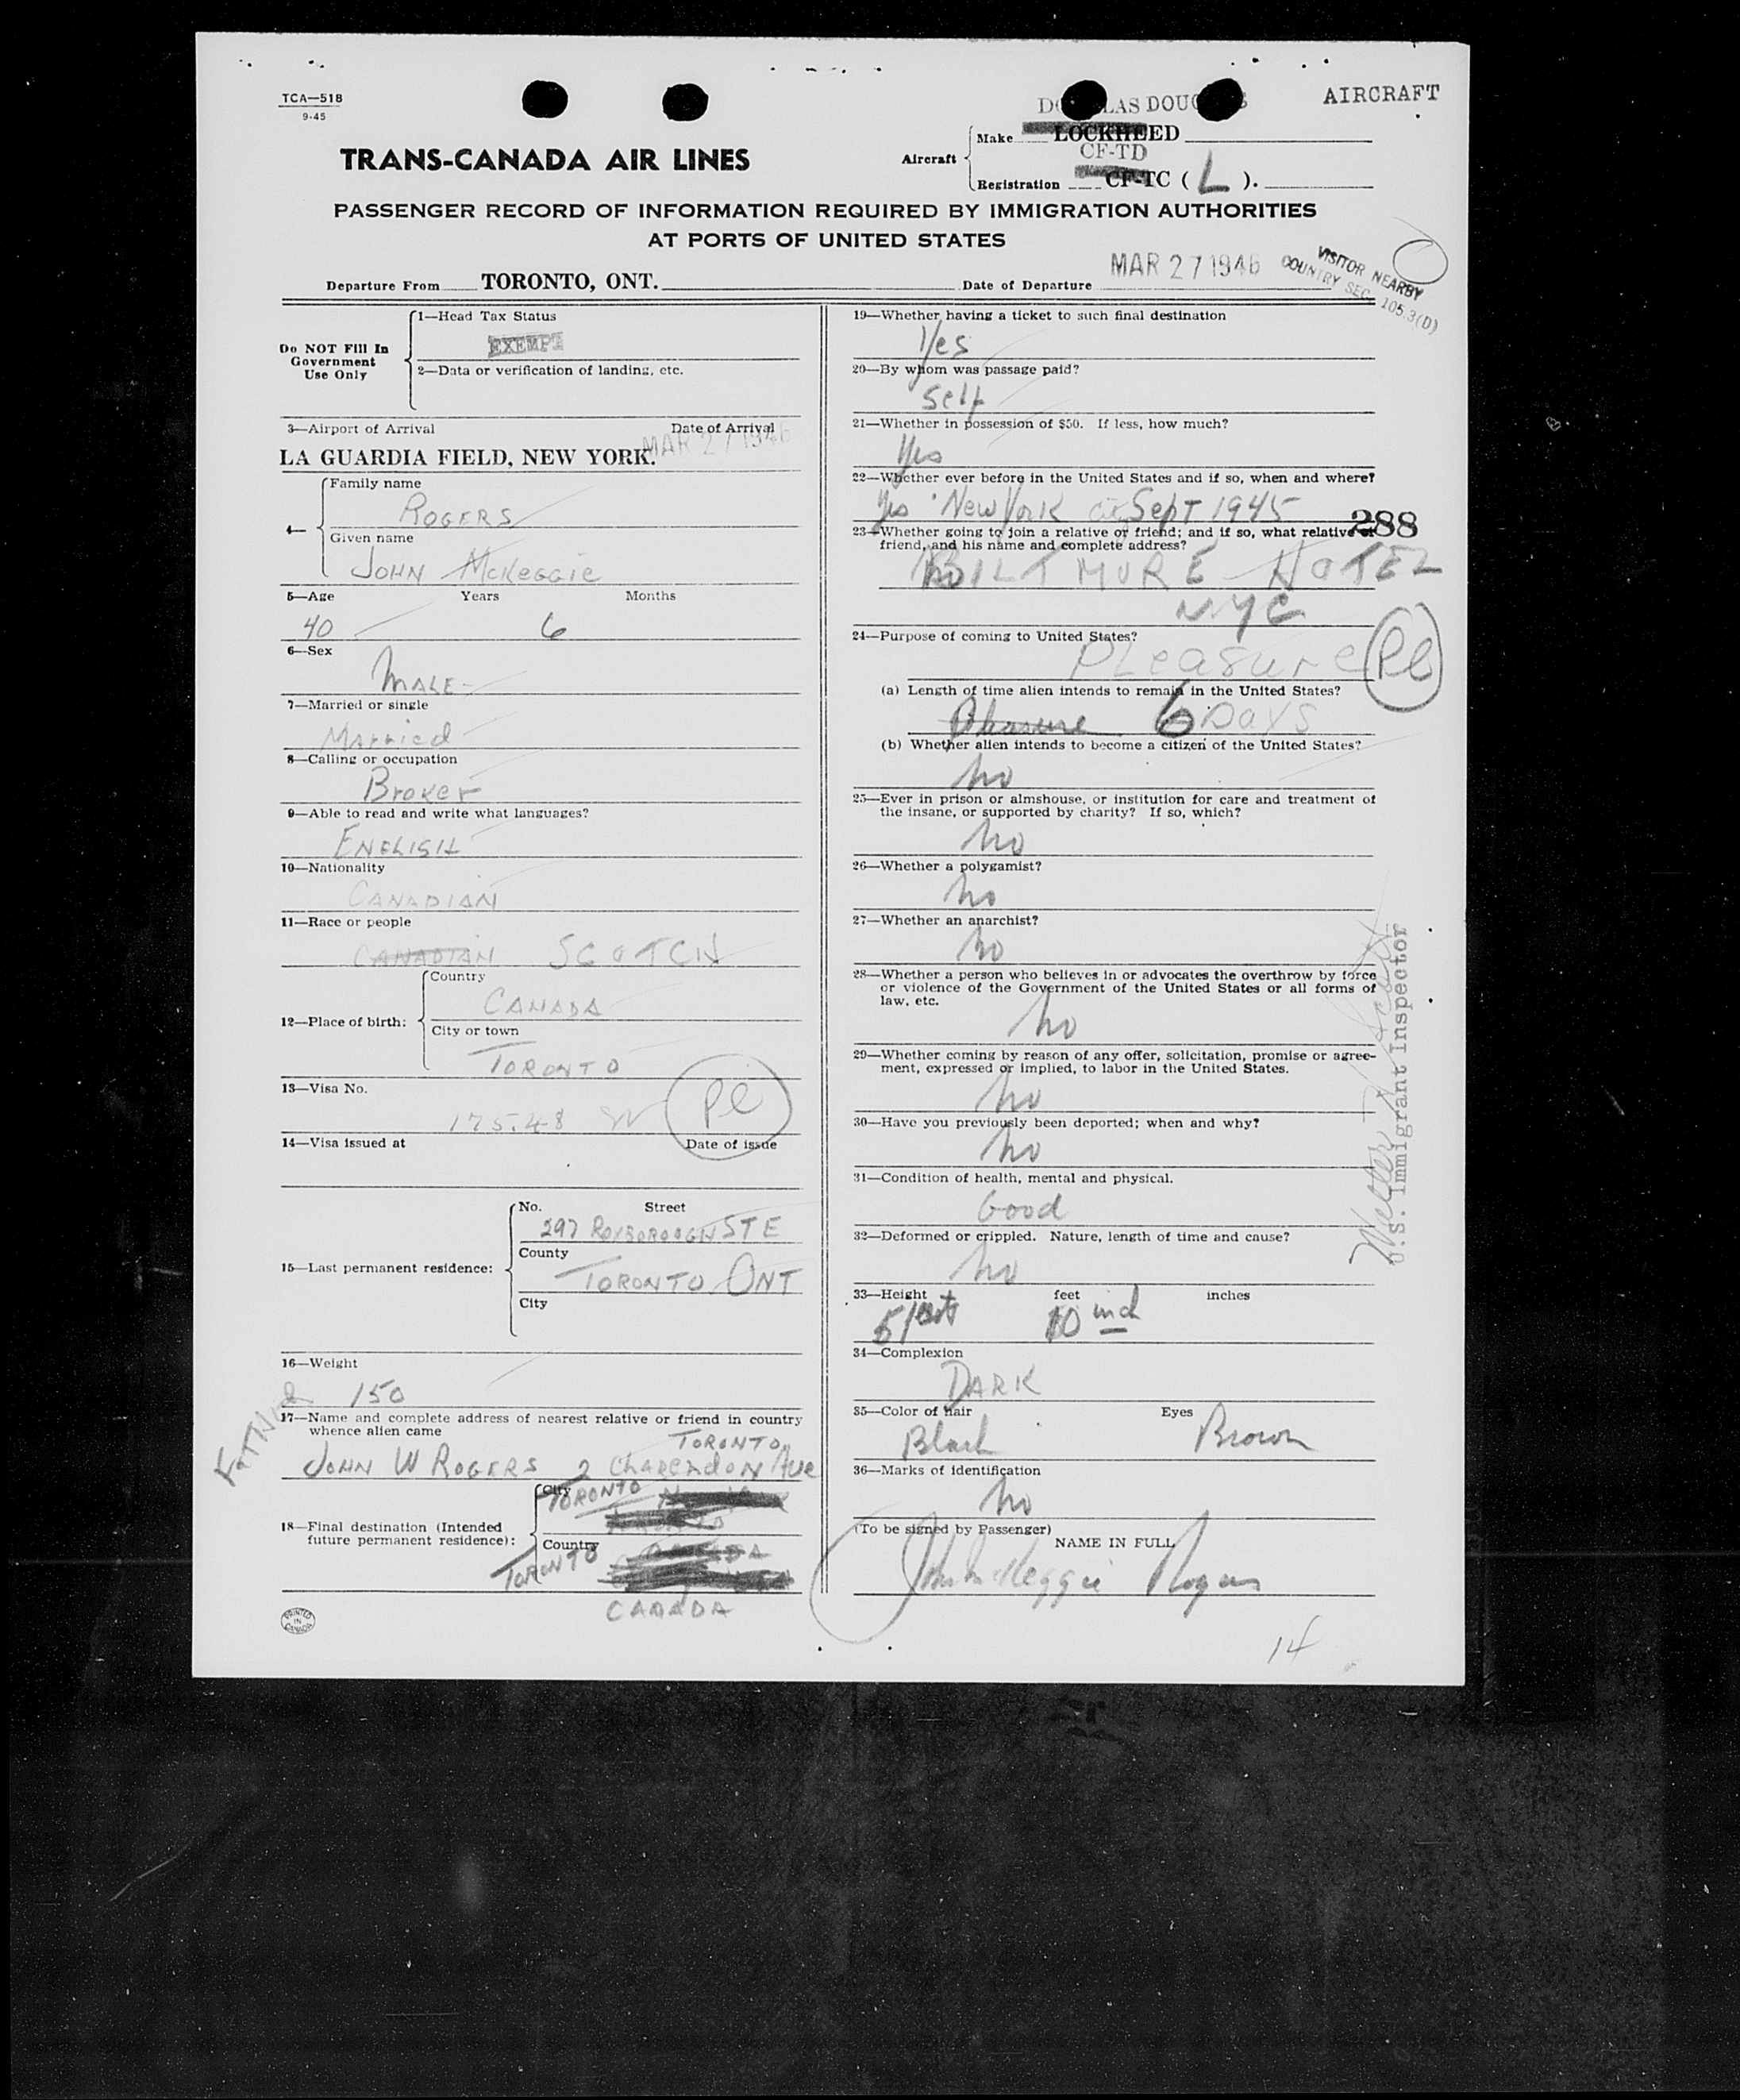 TCA—518
9-45
DOUGLAS DOUGLAS
AIRCRAFT
TRANS-CANADA AIR LINES
Aircraft
Make LOCKHEED
CF-TD
Registration CF-TC ( L ).
PASSENGER RECORD OF INFORMATION REQUIRED BY IMMIGRATION AUTHORITIES
AT PORTS OF UNITED STATES
VISITOR NEARBY
COUNTRY SEC. 105.3(D)
Departure From TORONTO, ONT. Date of Departure MAR 27 1946
Do NOT Fill In
Government
Use Only
1—Head Tax Status
EXEMPT
2—Data or verification of landing, etc.
3—Airport of Arrival Date of Arrival
LA GUARDIA FIELD, NEW YORK. MAR 27 1946
4—
Family name
ROGERS
Given name
JOHN McKeggie
5—Age Years Months
40 6
6—Sex
MALE
7—Married or single
Married
8—Calling or occupation
Broker
9—Able to read and write what languages?
ENGLISH
10—Nationality
CANADIAN
11—Race or people
CANADIAN SCOTCH
12—Place of birth:
Country
CANADA
City or town
TORONTO
13—Visa No.
175.48 Pl
14—Visa issued at Date of issue
15—Last permanent residence:
No. Street
297 ROXBOROUGH ST E
County
TORONTO ONT
City
16—Weight
150
FATHER
17—Name and complete address of nearest relative or friend in country
whence alien came
TORONTO
JOHN W ROGERS 2 Charendon Ave
18—Final destination (Intended
future permanent residence):
City
TORONTO
Country
TORONTO
CANADA
PRINTED
IN
CANADA
19—Whether having a ticket to such final destination
Yes
20—By whom was passage paid?
Self
21—Whether in possession of $50. If less, how much?
Yes
22—Whether ever before in the United States and if so, when and where?
Yes New York Sept 1945
288
23—Whether going to join a relative or friend; and if so, what relative or
friend, and his name and complete address?
no
BILTMORE HOTEL
NYC
24—Purpose of coming to United States?
Pleasure Pl
(a) Length of time alien intends to remain in the United States?
Pleasure 6 Days
(b) Whether alien intends to become a citizen of the United States?
no
25—Ever in prison or almshouse, or institution for care and treatment of
the insane, or supported by charity? If so, which?
no
26—Whether a polygamist?
no
27—Whether an anarchist?
no
28—Whether a person who believes in or advocates the overthrow by force
or violence of the Government of the United States or all forms of
law, etc.
no
29—Whether coming by reason of any offer, solicitation, promise or agree-
ment, expressed or implied, to labor in the United States.
no
30—Have you previously been deported; when and why?
no
31—Condition of health, mental and physical.
Good
32—Deformed or crippled. Nature, length of time and cause?
no
33—Height feet inches
5 10 inch
34—Complexion
DARK
35—Color of hair Eyes
Black Brown
36—Marks of identification
no
(To be signed by Passenger)
NAME IN FULL
John McKeggie Rogers
U.S. Immigrant Inspector
14